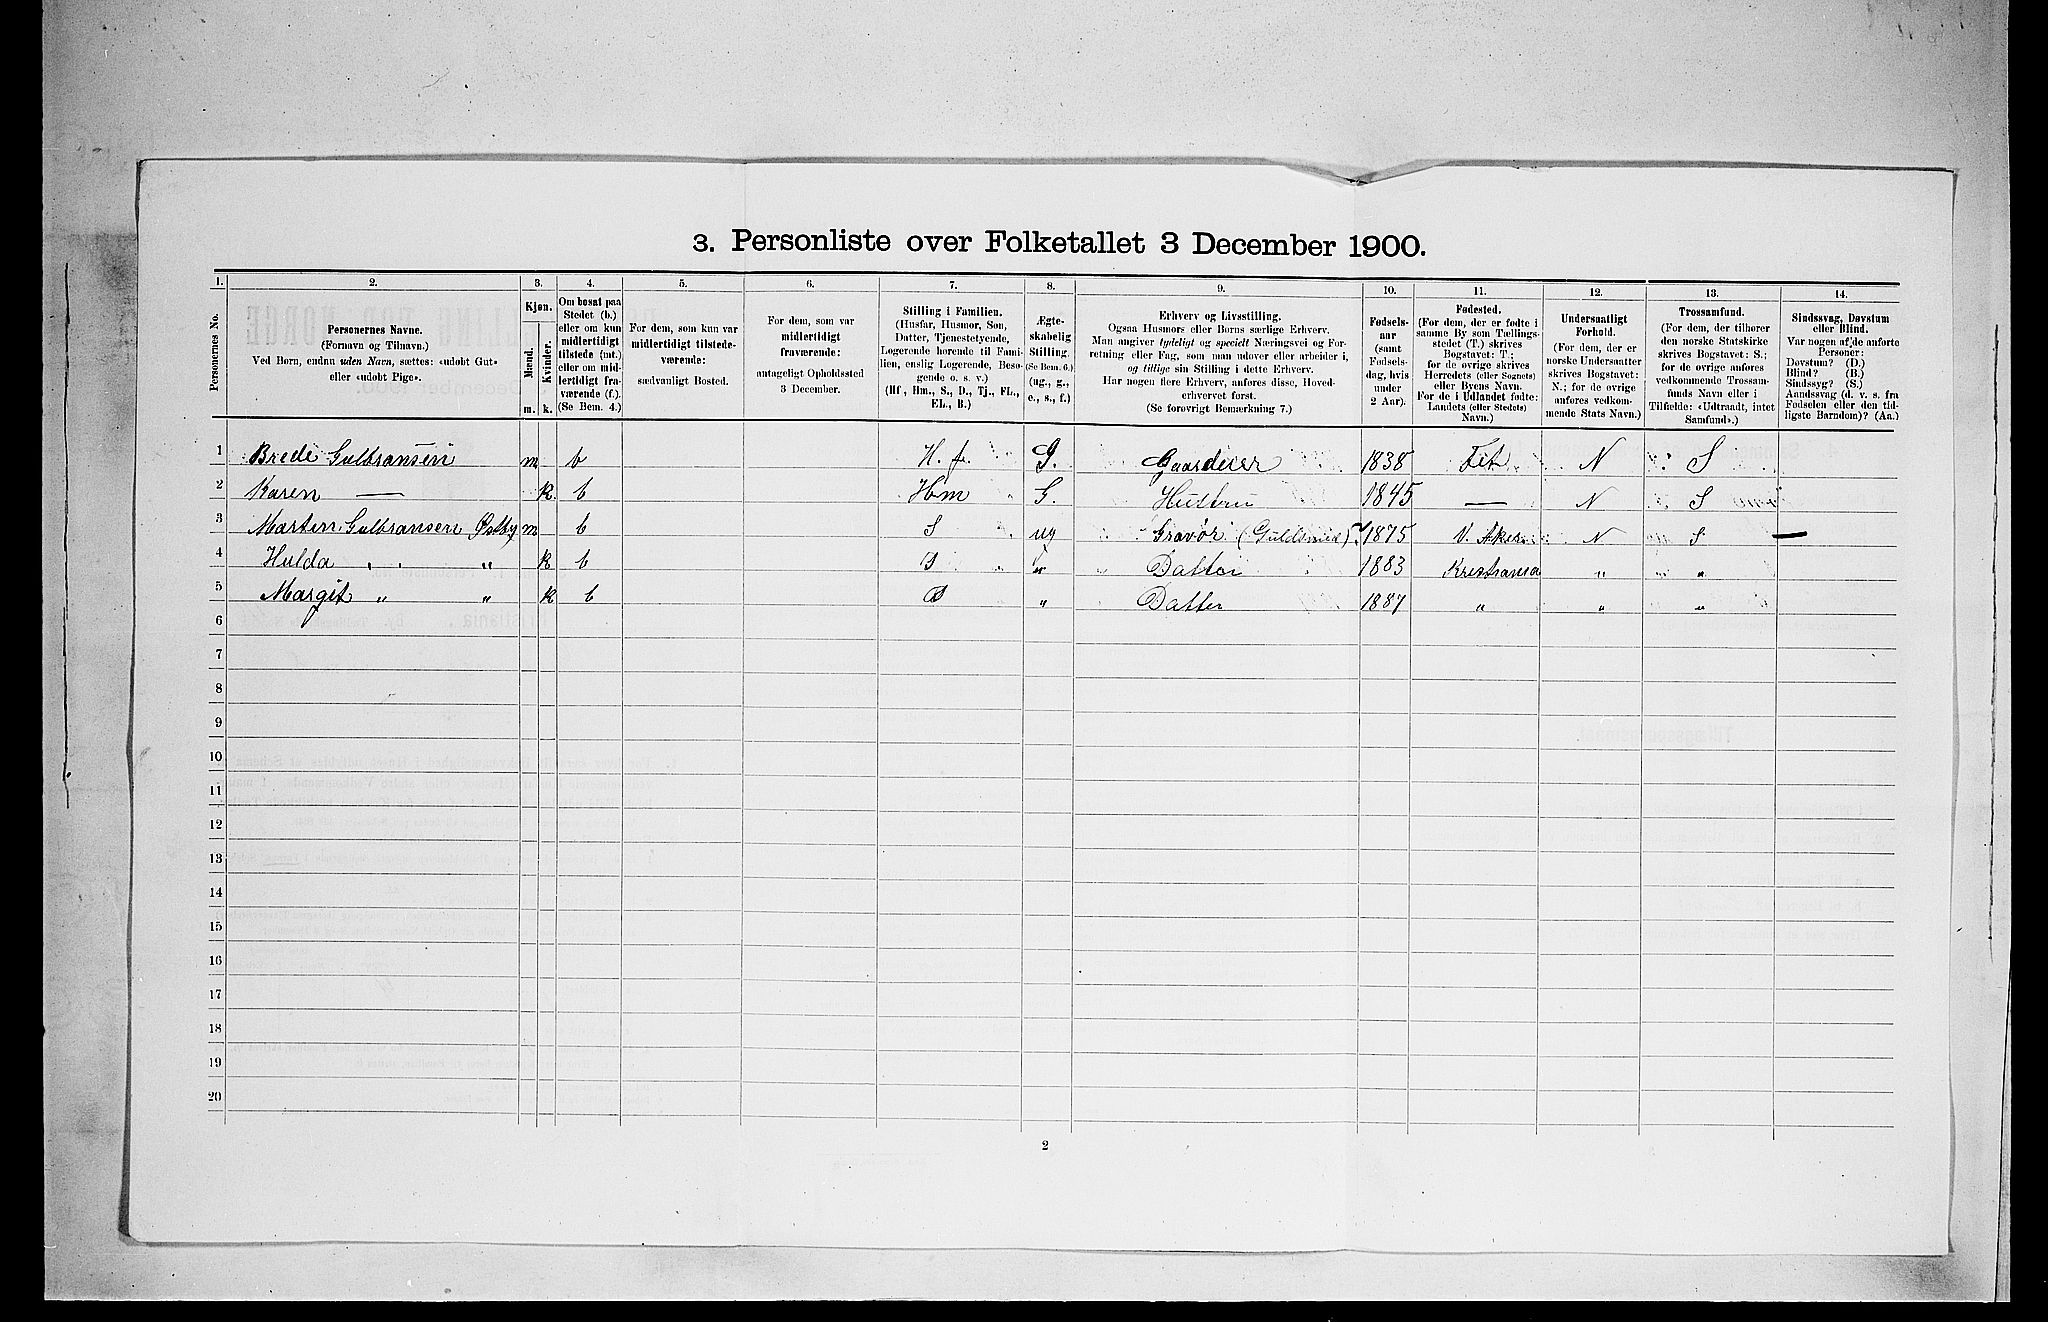 3. Personliste over Folketallet 3 December 1900.
1. 2. 3. 4. 5. 6. 7. 8. 9. 10. 11. 12. 13. 14.
Personernes No.
Personernes Navne.
(Fornavn og Tilnavn.)
Ved Børn, endnu uden Navn, sættes: «udøbt Gut»
eller «udøbt Pige».
Kjøn.
Mænd.
Kvinder.
m. k.
Om bosat paa
Stedet (b.)
eller om kun
midlertidigt
tilstede (mt.)
eller om mid-
lertidigt fra-
værende (f.).
(Se Bem. 4.)
For dem, som kun var
midlertidigt tilstede-
værende:
sædvanligt Bosted.
For dem, som var
midlertidigt
fraværende:
antageligt Opholdssted
3 December.
Stilling i Familien.
(Husfar, Husmor, Søn,
Datter, Tjenestetyende,
Logerende hørende til Fami-
lien, enslig Logerende, Besø-
gende o. s. v.)
(Hf., Hm., S., D., Tj., FL.,
EL., B.)
Ægte-
skabelig
Stilling.
(Se Bem. 6.)
(ug., g.,
e., s., f.)
Erhverv og Livsstilling.
Ogsaa Husmors eller Børns særlige Erhverv.
Man angiver tydeligt og specielt Næringsvei og For-
retning eller Fag, som man udøver eller arbeider i,
og tillige sin Stilling i dette Erhverv.
Har nogen flere Erhverv, anføres disse, Hoved-
erhvervet først.
(Se forøvrigt Bemærkning 7.)
Fødsels-
aar
(samt
Fødsels-
dag, hvis
under
2 Aar).
Fødested.
(For dem, der er fødte i
samme By som Tællings-
stedet (T.) skrives
Bogstavet: T.;
for de øvrige skrives
Herredets (eller Sognets)
eller Byens Navn.
For de i Udlandet fødte:
Landets (eller Stedets)
Navn.)
Undersaatligt
Forhold.
(For dem, der er
norske Undersaatter
skrives Bogstavet:
N.; for de øvrige
anføres vedkom-
mende Stats Navn.)
Trossamfund.
(For dem, der tilhører
den norske Statskirke
skrives Bogstavet: S.;
for de øvrige anføres
vedkommende Trossam-
funds Navn eller i
Tilfælde: «Udtraadt, intet
Samfund».)
Sindssvag, Døvstum
eller Blind.
Var nogen af de anførte
Personer:
Døvstum? (D.)
Blind? (B.)
Sindssyg? (S.)
Aandssvag (d. v. s. fra
Fødselen eller den tid-
ligste Barndom)? (Aa.)
1 Brede Gulbransen m b H. f. G. Gaardeier 1838 Fet N S
2 Karen — k b Hm G. Hustru 1845 — N S
3 Martin Gulbransen Østby m b S ug Gravør (Guldsmed) 1875 V. Aker N S —
4 Hulda " " k b D " Datter 1883 Kristiania " "
5 Margit " " k b D " Datter 1887 " " "
6
7
8
9
10
11
12
13
14
15
16
17
18
19
20
2